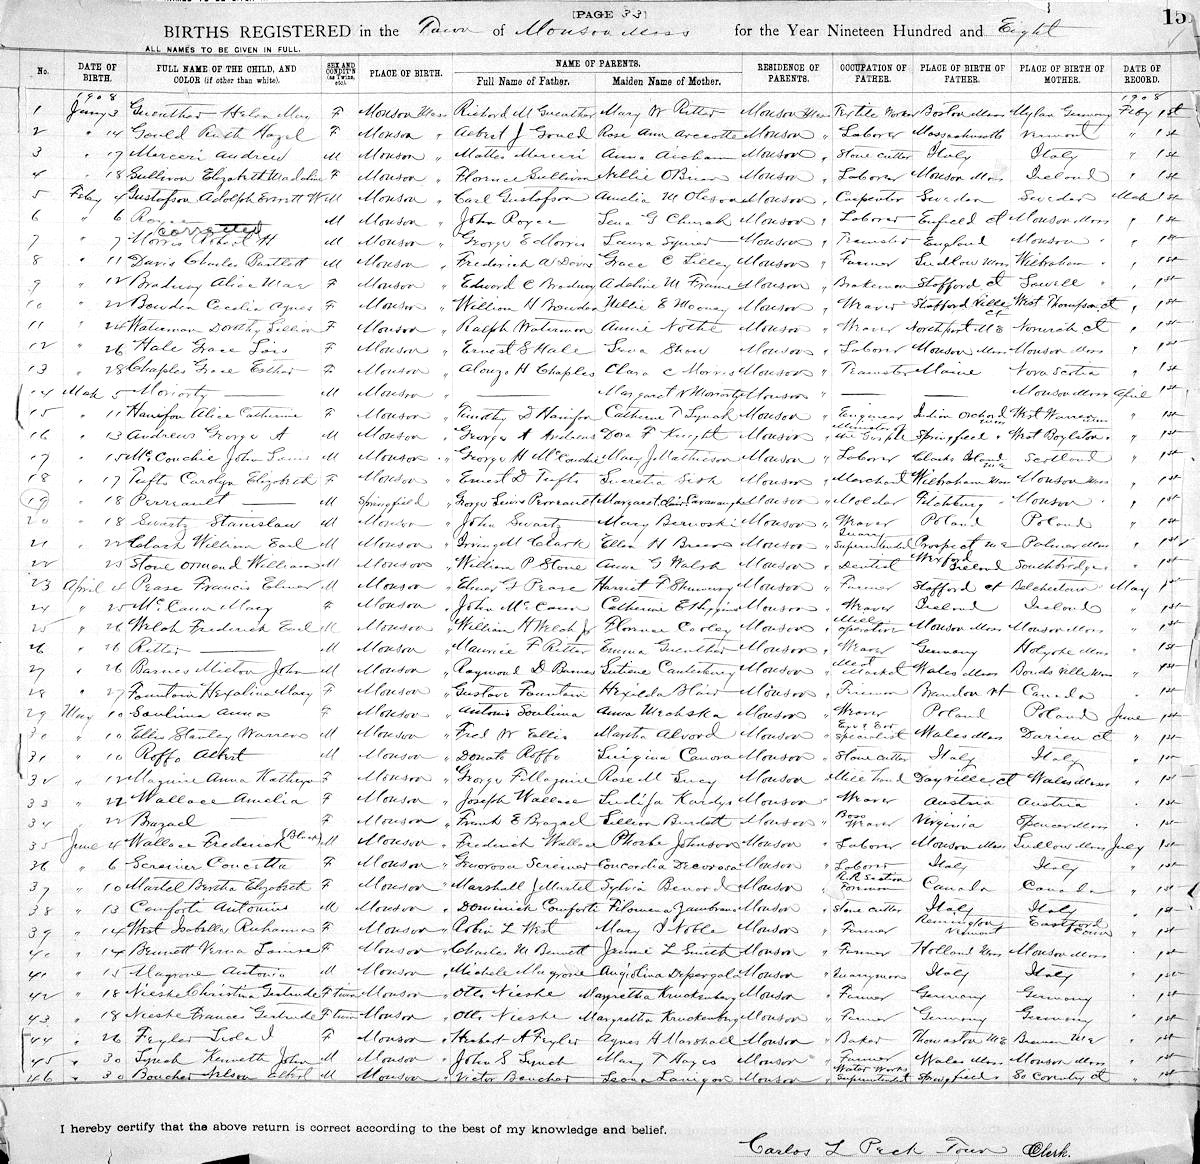 [PAGE 33]
15
BIRTHS REGISTERED in the Town of Monson Mass for the Year Nineteen Hundred and Eight
ALL NAMES TO BE GIVEN IN FULL.
No. DATE OF BIRTH. FULL NAME OF THE CHILD, AND COLOR (if other than white). SEX AND CONDIT'N (as Twins, etc.) PLACE OF BIRTH. NAME OF PARENTS. Full Name of Father. Maiden Name of Mother. RESIDENCE OF PARENTS. OCCUPATION OF FATHER. PLACE OF BIRTH OF FATHER. PLACE OF BIRTH OF MOTHER. DATE OF RECORD.
1908 1908
1 Jany 3 Guenther Helen May F Monson Mass Richard M Guenther Mary W Ritter Monson Mass Textile Worker Boston Mass Germany Feby 1st
2 " 14 Gould Ruth Hazel F Monson " Albert J Gould Rose Ann Monson " Laborer Massachusetts Vermont " 1st
3 " 17 Andrew M Monson " Anna Monson " Stone cutter Italy Italy " 1st
4 " 18 Sullivan Elizabeth Madeline F Monson " Florence Sullivan Nellie O'Brien Monson " Laborer Monson Mass Ireland " 1st
5 Feby 4 Gustafson Adolph Everett W M Monson " Carl Gustafson Amelia M Oleson Monson " Carpenter Sweden Sweden Mch 1st
6 " 6 Royce M Monson " John Royce Lena G Church Monson " Laborer Enfield Ct Monson Mass " 1st
corrected
7 " 7 Morris Robert H M Monson " George E Morris Laura Squier Monson " Teamster England Monson " " 1st
8 " 11 Davis Charles Bartlett M Monson " Frederick A Davis Grace C Lilley Monson " Farmer Ludlow Mass Wilbraham " " 1st
9 " 12 Bradway Alice Mae F Monson " Edward C Bradway Adeline M Frame Monson " Brakeman Stafford Ct Lowell " " 1st
10 " 22 Bowden Cecelia Agnes F Monson " William H Bowden Nellie E Mooney Monson " Weaver Stafford Ville Ct West Thompson Ct " 1st
11 " 24 Waterman Dorothy Lillian F Monson " Ralph Waterman Annie Nothe Monson " Weaver Northport Me Norwich Ct " 1st
12 " 26 Hale Grace Lois F Monson " Ernest S Hale Lena Shaw Monson " Laborer Monson Mass Monson Mass " 1st
13 " 28 Chaples Grace Esther F Monson " Alonzo H Chaples Clara C Morris Monson " Teamster Maine Nova Scotia " 1st
14 Mch 5 Moriarty — M Monson " — Margaret N Moriarty Monson " — — Monson Mass April 1st
15 " 11 Hanifan Alice Catherine F Monson " Timothy F Hanifan Catherine T Lynch Monson " Engineer Indian Orchard Mass West Warren Mass " 1st
16 " 13 Andrews George A M Monson " George A Andrews Dora F Knight Monson " Minister of the Gospel Springfield " West Boylston " " 1st
17 " 15 McConchie John Lewis M Monson " George H McConchie Mary J Mathieson Monson " Laborer Scotland " 1st
18 " 17 Tufts Carolyn Elizabeth F Monson " Ernest D Tufts Lucretia Monson " Merchant Wilbraham Mass Monson Mass " 1st
19 " 18 Perreault — M Springfield George Lewis Perreault Margaret Clair Cavanaugh Monson " Molder Fitchburg " Monson " " 1st
20 " 18 Swartz Stanislaw M Monson " John Swartz Mary Bernoski Monson " Weaver Poland Poland " 1st
21 " 22 Clark William Earl M Monson " Irving M Clark Ellen H Monson " Quarry Superintendent Prospect Me Palmer Mass " 1st
22 " 23 Stone Ormond William M Monson " William P Stone Anna G Walsh Monson " Dentist Wexford Ireland Southbridge " " 1st
23 April 4 Pease Francis Elmer M Monson " Elmer G Pease Harriet F Monson " Farmer Stafford Ct Belchertown " May 1st
24 " 25 McCann Mary F Monson " John McCann Catherine E Higgins Monson " Weaver Ireland Ireland " 1st
25 " 26 Welch Frederick Earl M Monson " William H Welch Jr Florence Cooley Monson " Mill operative Monson Mass Monson Mass " 1st
26 " 26 Ritter — M Monson " Maurice F Ritter Emma Guenther Monson " Weaver Germany Holyoke Mass " 1st
27 " 26 Barnes Milton John M Monson " Raymond D Barnes Monson " Meat Market Wales Mass Bonds Ville Mass " 1st
28 " 27 Fountain Hexalina Mary F Monson " Gustave Fountain Hexilda Blair Monson " Fireman Brandon Vt Canada " 1st
29 May 10 Soulima Anna F Monson " Antonio Soulima Anna Mechska Monson " Weaver Poland Poland June 1st
30 " 10 Ellis Stanley Warren M Monson " Fred W Ellis Martha Alvord Monson " Eye & Ear Specialist Wales Mass Darien Ct " 1st
31 " 10 Roffo Albert M Monson " Donato Roffo Luigina Canova Monson " Stone cutter Italy Italy " 1st
32 " 12 Maguire Anna Kathryn F Monson " George F Maguire Rose M Lucy Monson " Mill hand Dayville Ct Wales Mass " 1st
33 " 22 Wallace Amelia F Monson " Joseph Wallace Kardys Monson " Weaver Austria Austria " 1st
34 " 22 Brazeal — F Monson " Frank E Brazeal Lillian Burdett Monson " Boss Weaver Virginia Spencer Mass " 1st
35 June 4 Wallace Frederick (Black) M Monson " Frederick Wallace Phoebe Johnson Monson " Laborer Monson Mass Ludlow Mass July 1st
36 " 6 Concetta F Monson " Generoso Concordia Monson " Laborer Italy Italy " 1st
37 " 10 Martel Bertha Elizabeth F Monson " Marshall J Martel Sylvia Benard Monson " R.R Section Foreman Canada Canada " 1st
38 " 13 Comforte Antonius M Monson " Dominick Comforte Filomena Monson " Stone cutter Italy Italy " 1st
39 " 14 West Isabelle Ruhamna F Monson " Robin L West Mary S Noble Monson " Farmer Vermont Eastford Conn " 1st
40 " 14 Bennett Verna Louise F Monson " Charles M Bennett Jennie L Smith Monson " Farmer Holland Mass Monson Mass " 1st
41 " 15 Magrone Antonio M Monson " Michele Magrone Angiolina Depergola Monson " Quarryman Italy Italy " 1st
42 " 18 Nieske Christina Gertrude F twin Monson " Otto Nieske Margretha Kruckenberg Monson " Farmer Germany Germany " 1st
43 " 18 Nieske Frances Gertrude F twin Monson " Otto Nieske Margretha Kruckenberg Monson " Farmer Germany Germany " 1st
44 " 26 Feyler Leola I F Monson " Herbert A Feyler Agnes H Marshall Monson " Baker Thomaston Me Bremen Me " 1st
45 " 30 Lynch Kenneth John M Monson " John S Lynch Mary T Hayes Monson " Farmer Wales Mass Monson Mass " 1st
46 " 30 Boucher Nelson M Monson " Victor Boucher Leona Lanigan Monson " Water Works Superintendent Springfield " So Coventry Ct " 1st
I hereby certify that the above return is correct according to the best of my knowledge and belief.
Carlos L Peck Town Clerk.